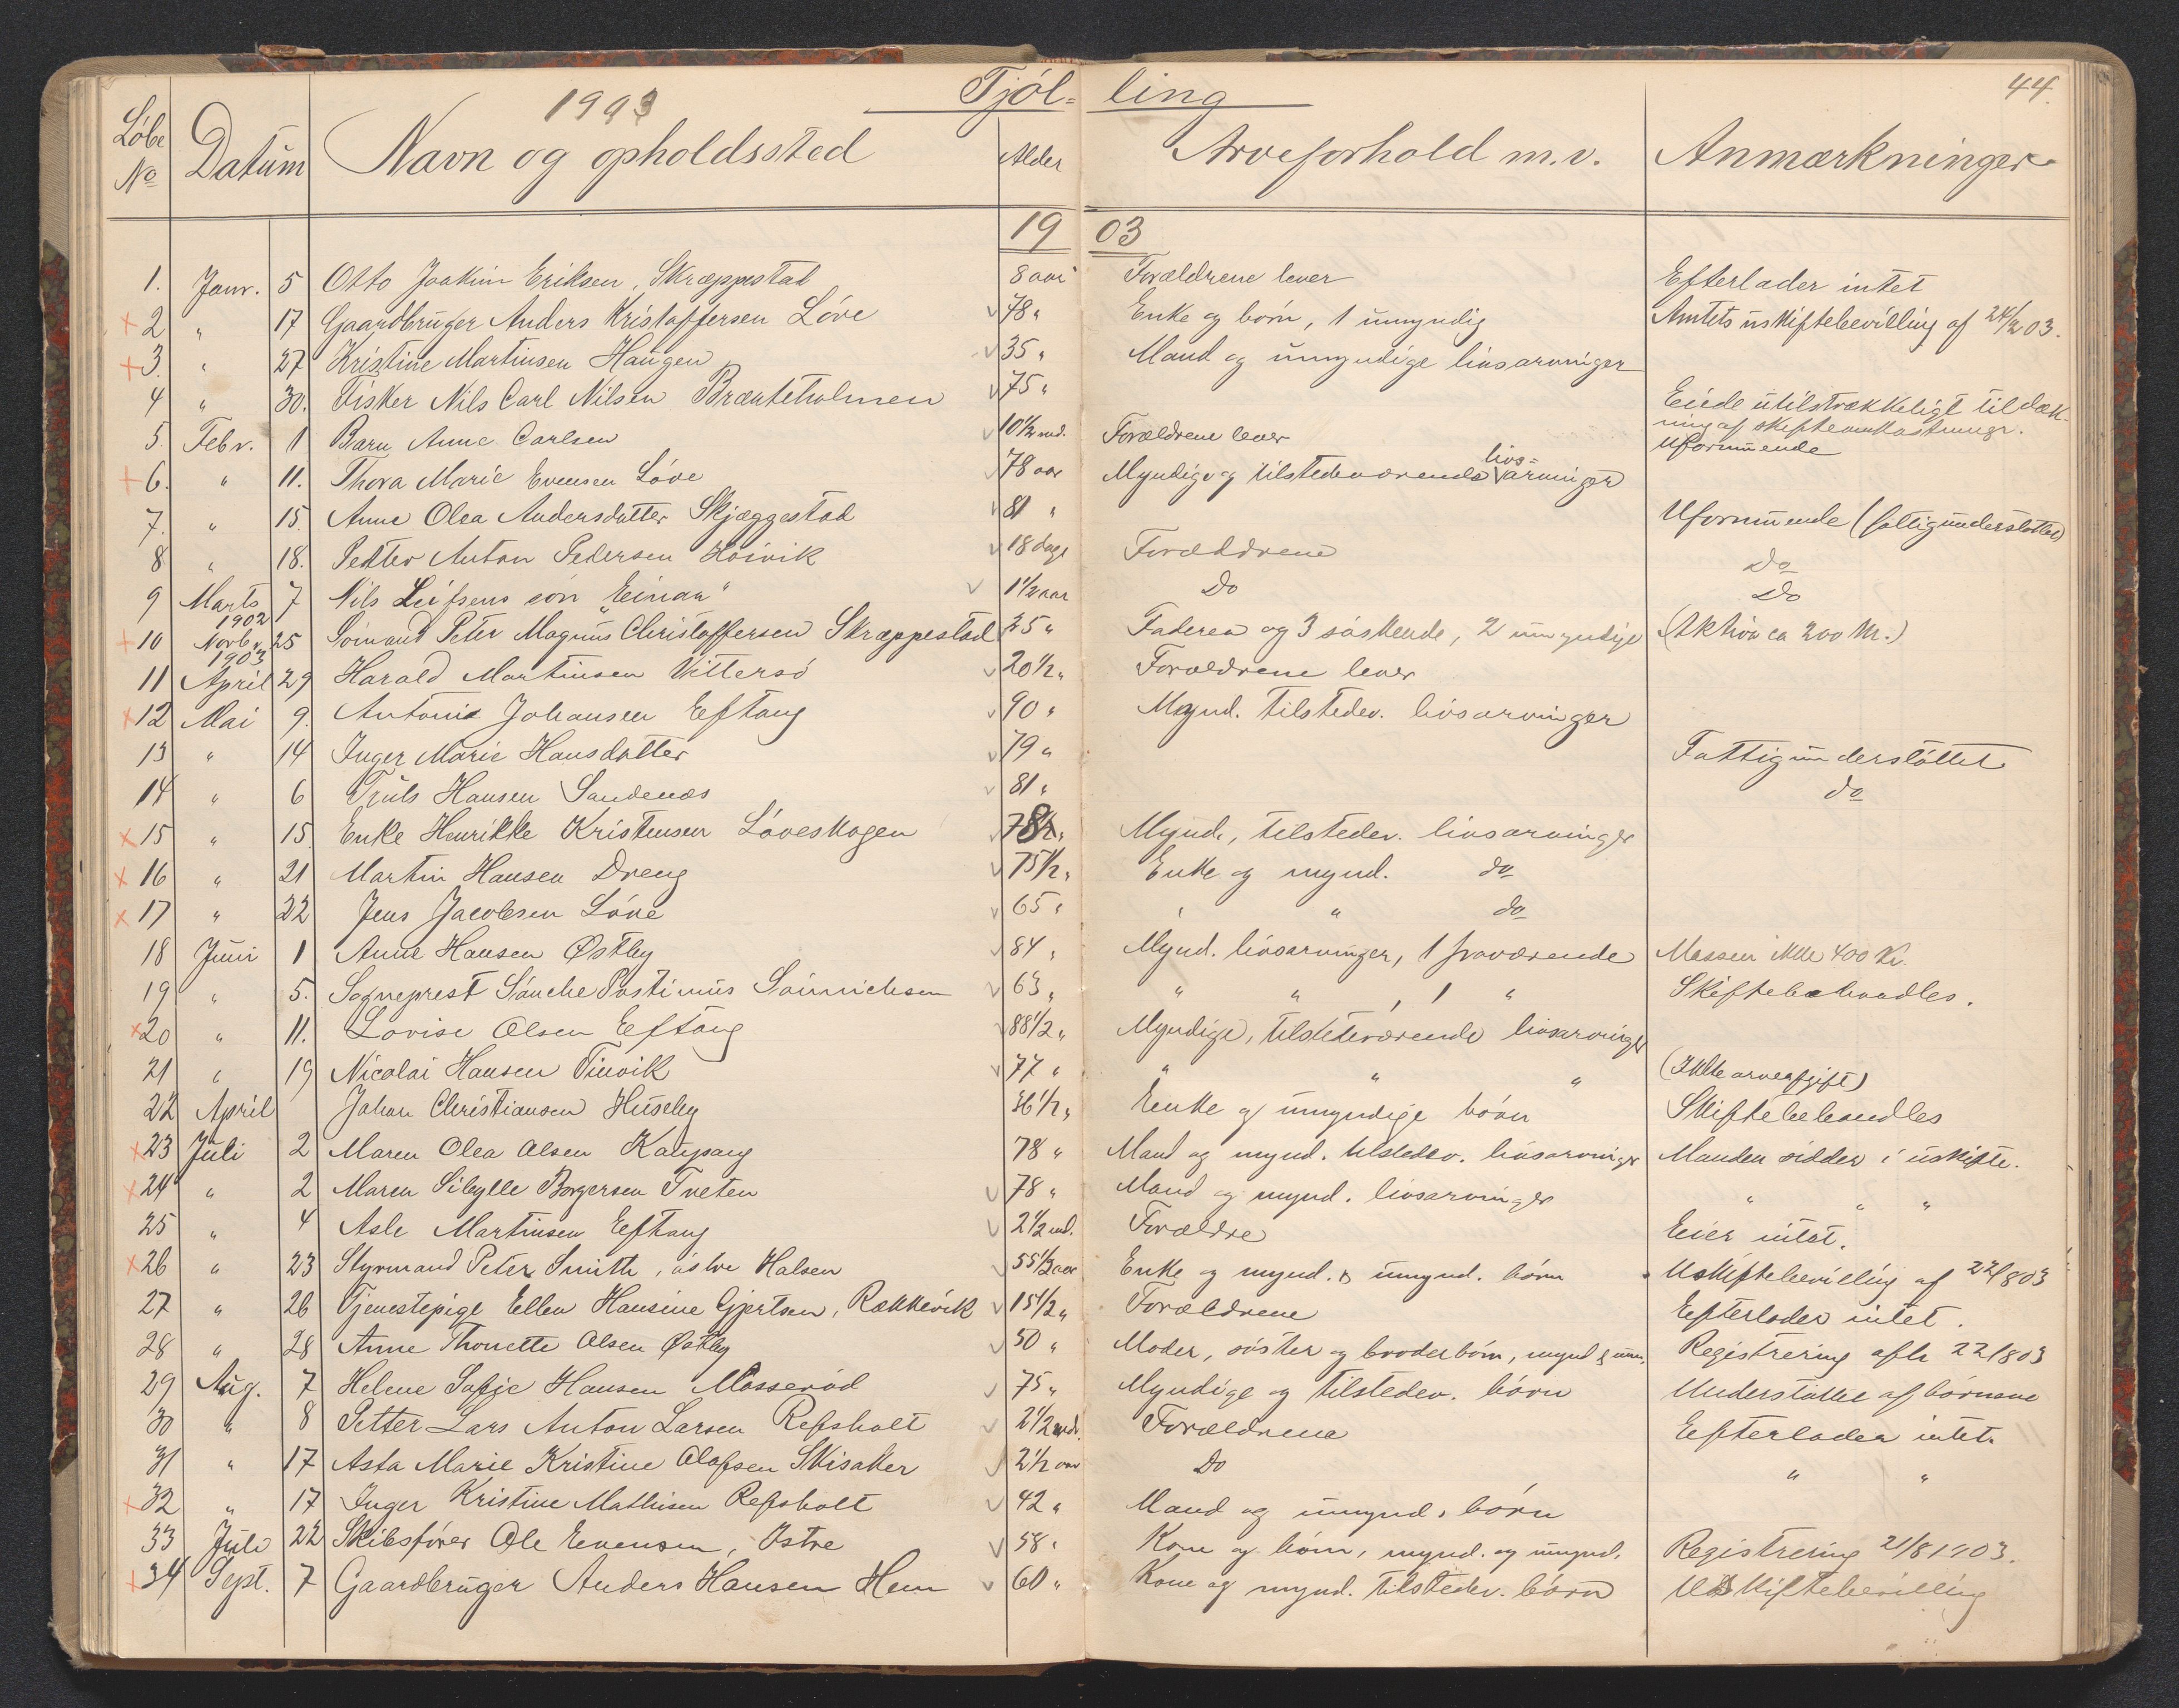 1903 Tjöl= ling 44.
Löbe No Datum Navn og opholdssted Alder Arveforhold m.v. Anmærkninger
19 03
1. Janr. 5 Otto Joakim Eriksen, Skræppestad 8 aar Forældrene lever Efterlader intet
2 " 17 Gaardbruger Anders Kristoffersen Löve 78 " Enke og börn, 1 umyndig Amtets uskiftebevilling af 24/2 03.
3. " 27 Kristine Martinsen Haugen 35 " Mand og umyndige livsarvinger
4 " 30. Fisker Nils Carl Nilsen Brænteholmen 75 " Eiede utilstrækkeligt til dæk-
ning af skifteomkostninger.
5. Febr. 1 Barn Anne Carlsen 10 1/2 md. Forældrene lever Uformuende
6. " 11. Thora Marie Evensen Löve 78 aar Myndige og tilstedeværende livs= arvinger
7. " 15. Anne Olea Andersdatter Skjæggestad 81 " Uformuende (fattigunderstöttet)
8 " 18. Petter Anton Pedersen Höivik 18 dage Forældrene Do
9 Marts 7 Nils Leifsens sön "Einar" 1 1/2 aar Do Do
1902
10 Novbr. 25 Sömand Peter Magnus Christoffersen Skræppestad 25 " Faderen og 3 söskende, 2 umyndige (Aktiva ca 200 Kr.)
1903
11 April 29 Harald Martinsen Vittersö 20 1/2 " Forældrene lever
12 Mai 9. Antonie Johansen Eftang 90 " Mynd. tilstedev. livsarvinger
13 " 14 Inger Marie Hansdatter 79 " Fattigunderstöttet
14 " 6 Truls Hansen Sandenæs 81 " do
15 " 15. Enke Henrikke Kristensen Löveskogen 78 " Mynd., tilstedev. livsarvinger
16 " 21 Martin Hansen Dreng 75 1/2 " Enke og mynd. do
17 " 22 Jens Jacobsen Löve 65 " " " do
18 Juni 1 Anne Hansen Østby 84 " Mynd. livsarvinger, 1 fraværende Massen ikke 400 Kr.
19 " 5. Sogneprest 63 " " " , 1 " Skiftebehandles.
20 " 11. Lovise Olsen Eftang 88 1/2 " Myndige, tilstedeværende livsarvinger
21 " 19 Nicolai Hansen Tinvik 77 " " " " (Ikke arveafgift)
22 April Johan Christiansen Huseby 36 1/2 " Enke og umyndige börn Skiftebehandles
23 Juli 2 Maren Olea Olsen Kaupang 78 " Mand og mynd. tilstedev. livsarvinger Manden sidder i uskifte.
24 " 2 Maren Sibylle Borgersen Tveten 78 " Mand og mynd. livsarvinger " " "
25 " 4 Asle Martinsen Eftang 2 1/2 md. Forældre Eier intet.
26 " 23 Styrmand Peter Smith, östre Halsen 55 1/2 aar Enke og mynd. & umynd. börn Uskiftebevilling af 22/8 03
27 " 26 Tjenestepige Ellen Hansine Gjertsen, Rækkevik 15 1/2 " Forældrene Efterlader intet.
28 " 28 Anne Thonette Olsen Østby 50 " Moder, söster og broderbörn, mynd & um. Registrering afh. 22/8 03
29 Aug. 7 Helene Sofie Hansen Mosseröd 75 " Myndige og tilstedev. börn Understöttet af börnene
30 " 8 Petter Lars Anton Larsen Refsholt 2 1/2 mdr. Forældrene Efterlader intet.
31 " 17 Asta Marie Kristine Olafsen Skisaker 2 1/2 aar Do " "
32 " 17 Inger Kristine Mathisen Refsholt 42 " Mand og umynd. börn
33 Juli 22 Skibsförer Ole Evensen, Østre 58 " Kone og börn, mynd. og umynd. Registrering 21/8 1903.
34 Sept. 7 Gaardbruger Anders Hansen Hem 60 " Kone og mynd. tilstedev. börn Uskiftebevilling